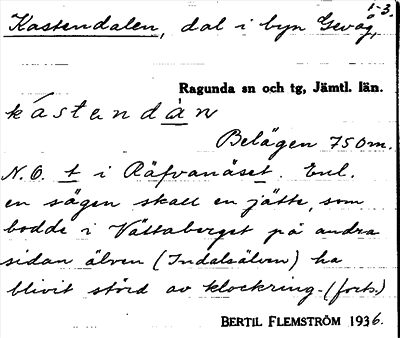 1-3.
Kastendalen, dal i byn Gevåg,
Ragunda sn och tg, Jämtl. län.
kástendàn
Belägen 750m.
N.O. t i Räfvanäset. Enl.
en sägen skall en jätte, som
bodde i Vättaberget på andra
sidan älven (Indalsälven) ha
blivit störd av klockring- (forts.)
BERTIL FLEMSTRÖM 1936.